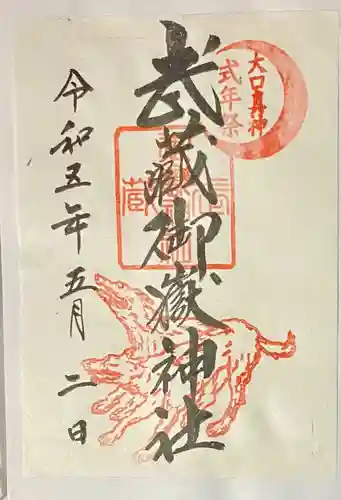 大口真神
式年祭
武蔵御嶽神社
令和五年五月二日